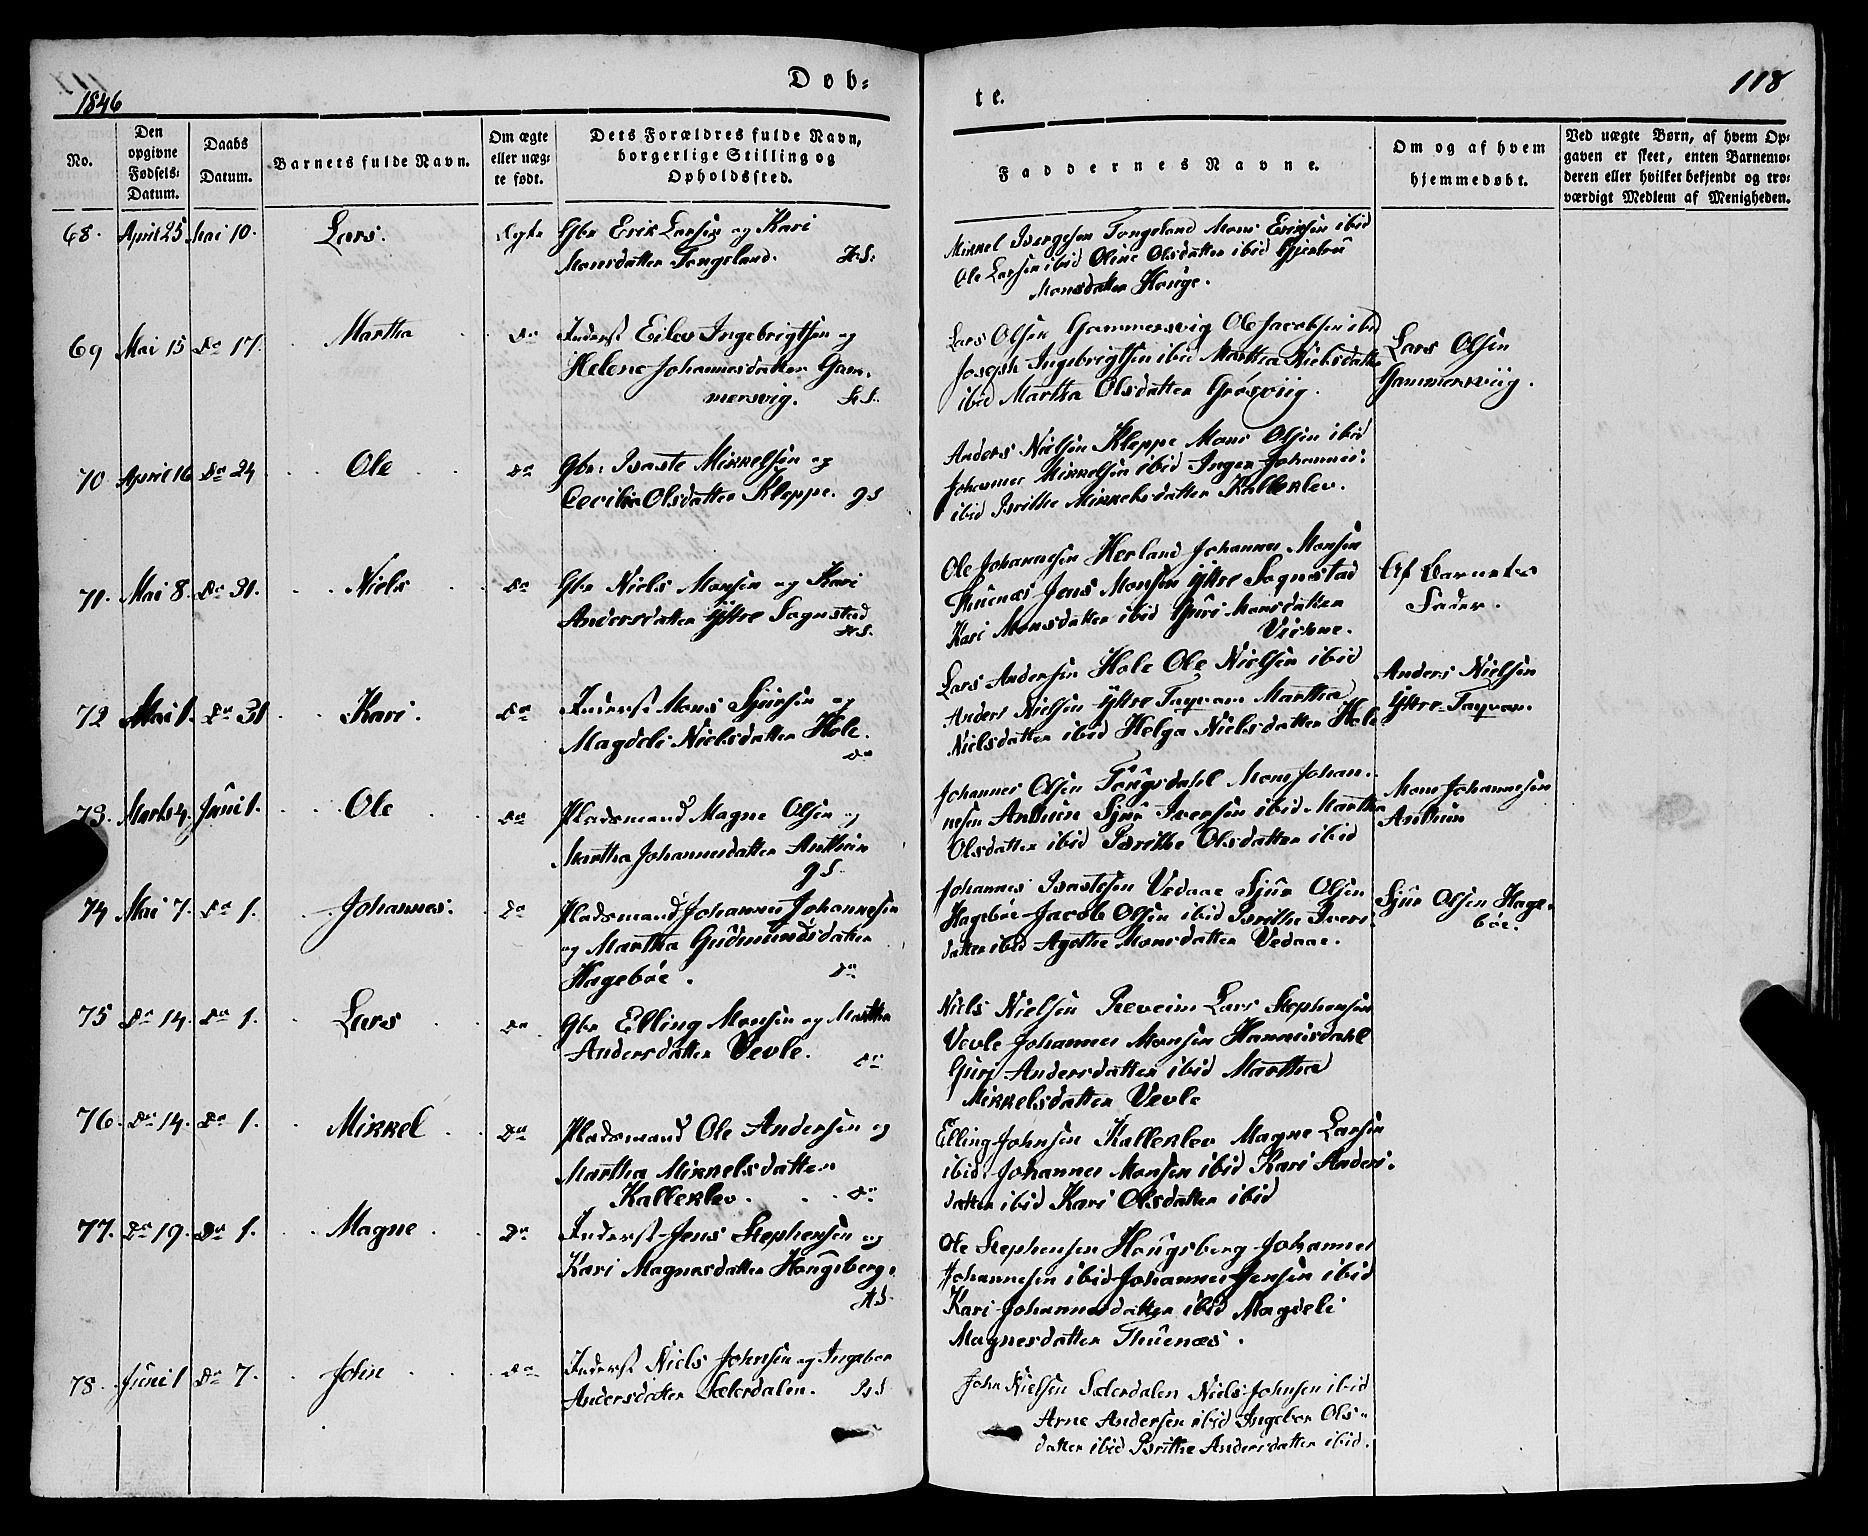 Døb=
te.
118
1846
No.
Den opgivne Fødsels-Datum.
Daabs Datum.
Barnets fulde Navn.
Om ægte eller uægte født.
Dets Forældres fulde Navn, borgerlige Stilling og Opholdssted.
Faddernes Navne.
Om og af hvem hjemmedøbt.
Ved uægte Børn, af hvem Opgaven er skeet, enten Barnemoderen eller hvilket bekjendt og troværdigt Medlem af Menigheden.
68. April 25 Mai 10. Lars. Ægte Gbr Erik Larsen og Kari
Monsdatter Tongeland. H.S.
Mikkel Ivergesen Tongeland Mons Eriksen ibid
Ole Larsen ibid Oline Olsdatter ibid
Monsdatter Houge.
69 Mai 15 Do 17. Martha Do Inderst Eilev Ingebrigtsen og
Helene Johannesdatter Gam-
mersvig. H.S.
Lars Olsen Gammersvig Ole Jacobsen ibid
Joseph Ingebrigtsen ibid Martha Nielsdatter
ibid Martha Olsdatter Grøsviig.
Lars Olsen
Gammersviig.
70 April 16 Do 24 Ole Do Gbr: Braste Mikkelsen og
Cecilia Olsdatter Kleppe. g S
Anders Nielsen Kleppe Mons Olsen ibid
Johannes Mikkelsen ibid Inger Johannes:
ibid Brithe Mikkelsdatter Kallerlev.
71. Mai 8. Do 31. Niels Do Gbr Niels Monsen og Kari
Andersdatter Ÿttre Sagnstad
H.S.
Ole Johannesen Herland Johannes Monsen
Thuenæs Jens Monsen Ÿttre Sagnstad
Kari Monsdatter ibid Guri Monsdatter
Virkne.
Af Barnets
Fader.
72 Mai 1. Do 31 Kari. Do Inderst Mons Sjursen og
Magdeli Nielsdatter Hole.
Do
Lars Andersen Hole Ole Nielsen ibid
Anders Nielsen Ÿttre Taqvam Martha
Nielsdatter ibid Helga Nielsdatter Hole
Anders Nielsen
Ÿttre Taqvam.
73. Marts 4. Juni 1. Ole Do Pladsmand Magne Olsen og
Martha Johannesdatter Anthun
g S.
Johannes Olsen Tougsdahl Mons Johan-
nesen Anthun Sjur Iversen ibid Martha
Olsdatter ibid Brithe Olsdatter ibid
Mons Johannesen
Anthun
74 Mai 7. Do 1. Johannes. Do Pladsmand Johannes Johannesen
og Martha Gudmundsdatter
Hagebøe. Do
Johannes Brastesen Vedaae Sjur Olsen
Hagebøe Jacob Olsen ibid Brithe Ivers-
datter ibid Agathe Monsdatter Vedaae.
Sjur Olsen Hage-
bøe.
75 Do 14. Do 1. Lars Do Gbr Elling Monsen og Martha
Andersdatter Vevle. Do
Niels Nielsen Reveim Lars Stephensen
Vevle Johannes Monsen Hannisdahl
Guri Andersdatter ibid Martha
Mikkelsdatter Vevle
76. Do 14. Do 1. Mikkel Do Pladsmand Ole Andersen og
Martha Mikkelsdatter
Kallerlev. Do
Elling Johnsen Kallerlev Magne Larsen
ibid. Johannes Monsen ibid Kari Anders-
datter ibid Kari Olsdatter ibid
77. Do 19. Do 1. Magne Do Inderst Jens Stephensen og
Kari Magnesdatter Hougsberg.
H.S.
Ole Stephensen Hougsberg Johannes
Johannesen ibid Johannes Jensen ibid
Kari Johannesdatter ibid Magdeli
Magnesdatter Thuenæs.
78. Juni 1 Do 7. John Do Inderst Niels Johnsen og Ingebor
Andersdatter Sælerdalen. H.S.
John Nielsen Sælerdalen Niels Johnsen ibid
Arne Andersen ibid Ingebor Ols-
datter ibid Brithe Andersdatter ibid.